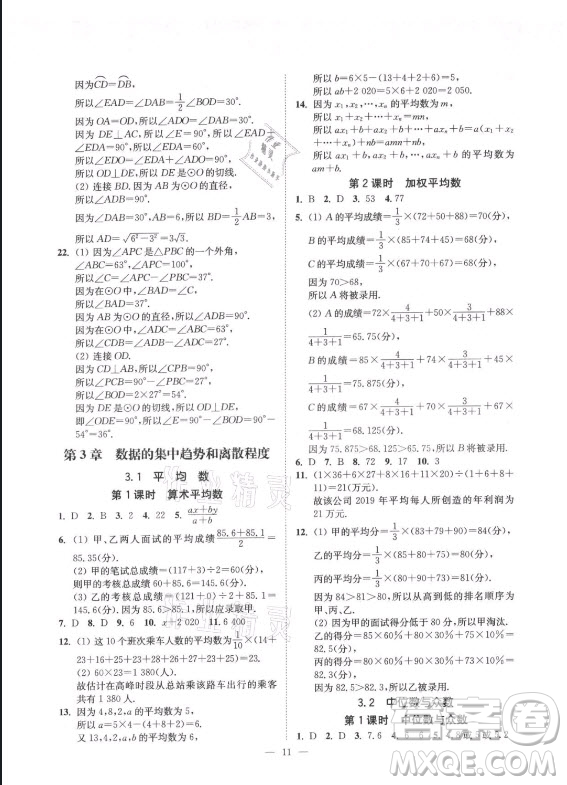 因为CD=DB,
所以∠EAD=∠DAB=1/2∠BOD=30°.
因为OA=OD,所以∠ADO=∠DAB=30°.
因为DE⊥AC,所以∠E=90°.所以∠EAD+
∠EDA=90°.所以∠EDA=60°.
所以∠EDO=∠EDA+∠ADO=90°.
所以OD⊥DE.所以DE是⊙O的切线.
(2) 连接BD.因为AB为⊙O的直径,
所以∠ADB=90°.
因为∠DAB=30°,AB=6,所以BD=1/2AB=3,
所以AD=√6²-3²=3√3.
22. (1) 因为∠APC是△PBC的一个外角,
∠ABC=63°,∠APC=100°,
所以∠C=∠APC-∠PBC=37°.
因为在⊙O中,∠DAB=∠C,
所以∠BAD=37°.
因为AB是⊙O的直径,所以∠ADB=90°.
因为在⊙O中,∠ADC=∠ABC=63°,
所以∠CDB=∠ADB-∠ADC=27°.
(2) 连接OD.
因为CD⊥AB,所以∠CPB=90°.
所以∠PCB=90°-∠PBC=27°.
所以∠BOD=2×27°=54°.
因为DE是⊙O的切线,所以OD⊥DE,
即∠ODE=90°.所以∠E=90°-∠BOD=90°
-54°=36°.
第3章 数据的集中趋势和离散程度
3.1 平均数
第1课时 算术平均数
1. D 2. B 3. 2 4. 22 5. ax+by/a+b
6. (1) 甲、乙两人面试的平均成绩85.6+85.1/2=
85.35(分).
(2) 甲的笔试总成绩=(117+3)÷2=60(分),
则甲的考核总成绩60+85.6=145.6(分).
(3) 乙的考核总成绩60.5+85.1=145.6(分),
145.6=145.6,所以应录取甲.
7. D 8. D 9. 8 10. x+2x₀ 11. 6 400
12. (1) 这10个班次乘车人数的平均数为1/10×(14+
23+16+25+23+28+26+27+23+25)=23.
(2) 60×23=1 380(人).
故估计在高峰时段从总站乘该路车出行的乘客
共有1 380人.
13. 因为4,8,2,a的平均数是5,
所以a=5×4-(4+8+2)=6.
又13,4,2a,6,b,2的平均数也是5,
所以b=6×5-(13+4+2+6)=5.
所以ab+2 020=5×6+2 020=2 050.
14. 因为x₁,x₂,…,xₙ的平均数为m,
所以x₁+x₂+…+xₙ=mn,
所以ax₁+b+ax₂+b+…+axₙ+b=amn+bn,
所以ax₁+b,ax₂+b,…,axₙ+b的平均数是
am+b.
第2课时 加权平均数
1. B 2. D 3. 53 4. 77
5. (1) A的平均成绩=1/3×(72+50+88)=70(分),
B的平均成绩=1/3×(85+74+45)=68(分),
C的平均成绩=1/3×(67+70+67)=68(分),
因为70>68,
所以A将被录用.
(2) A的成绩=72×4/4+3+1+50×3/4+3+1+88×
1/4+3+1=65.75(分),
B的成绩=85×4/4+3+1+74×3/4+3+1+45×
1/4+3+1=75.875(分),
C的成绩=67×4/4+3+1+70×3/4+3+1+67×
1/4+3+1=68.125(分).
因为75.875>68.125>65.75,所以B将被录用.
6. D 7. B 8. 12 9. 0.2 10. 1.5
11. (1×30+16×27+2×28+4×16+3×20)÷(1+
16+2+4+3)=21(万).
故该公司2019年平均每人所创造的年利润为
21万元.
12. (1) 甲的平均分=1/3×(83+79+90)=84(分),
乙的平均分=1/3×(85+80+75)=80(分),
丙的平均分=1/3×(80+90+73)=81(分).
因为84>81>80,所以从高到低的排名顺序为
甲、丙、乙.
(2) 因为甲的面试低于80分,所以甲淘汰.
乙的得分=85×60%+80×30%+75×10%=
82.5(分),
丙的得分=80×60%+90×30%+73×10%=
82.3(分).
因为82.5>82.3,所以乙将被录用.
3.2 中位数与众数
第1课时 中位数与众数
1. B 2. D 3. 7.6
11